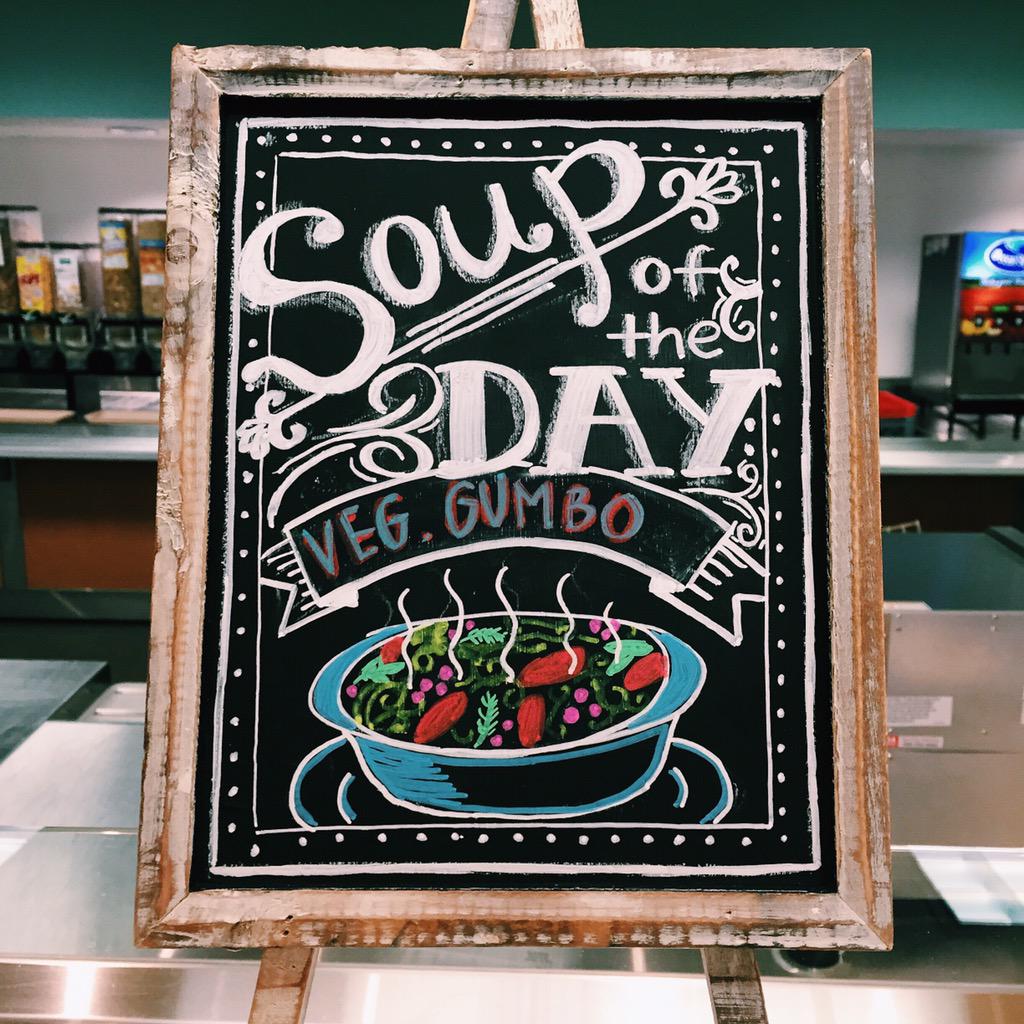 Soup
of
the
DAY
VEG. GUMBO